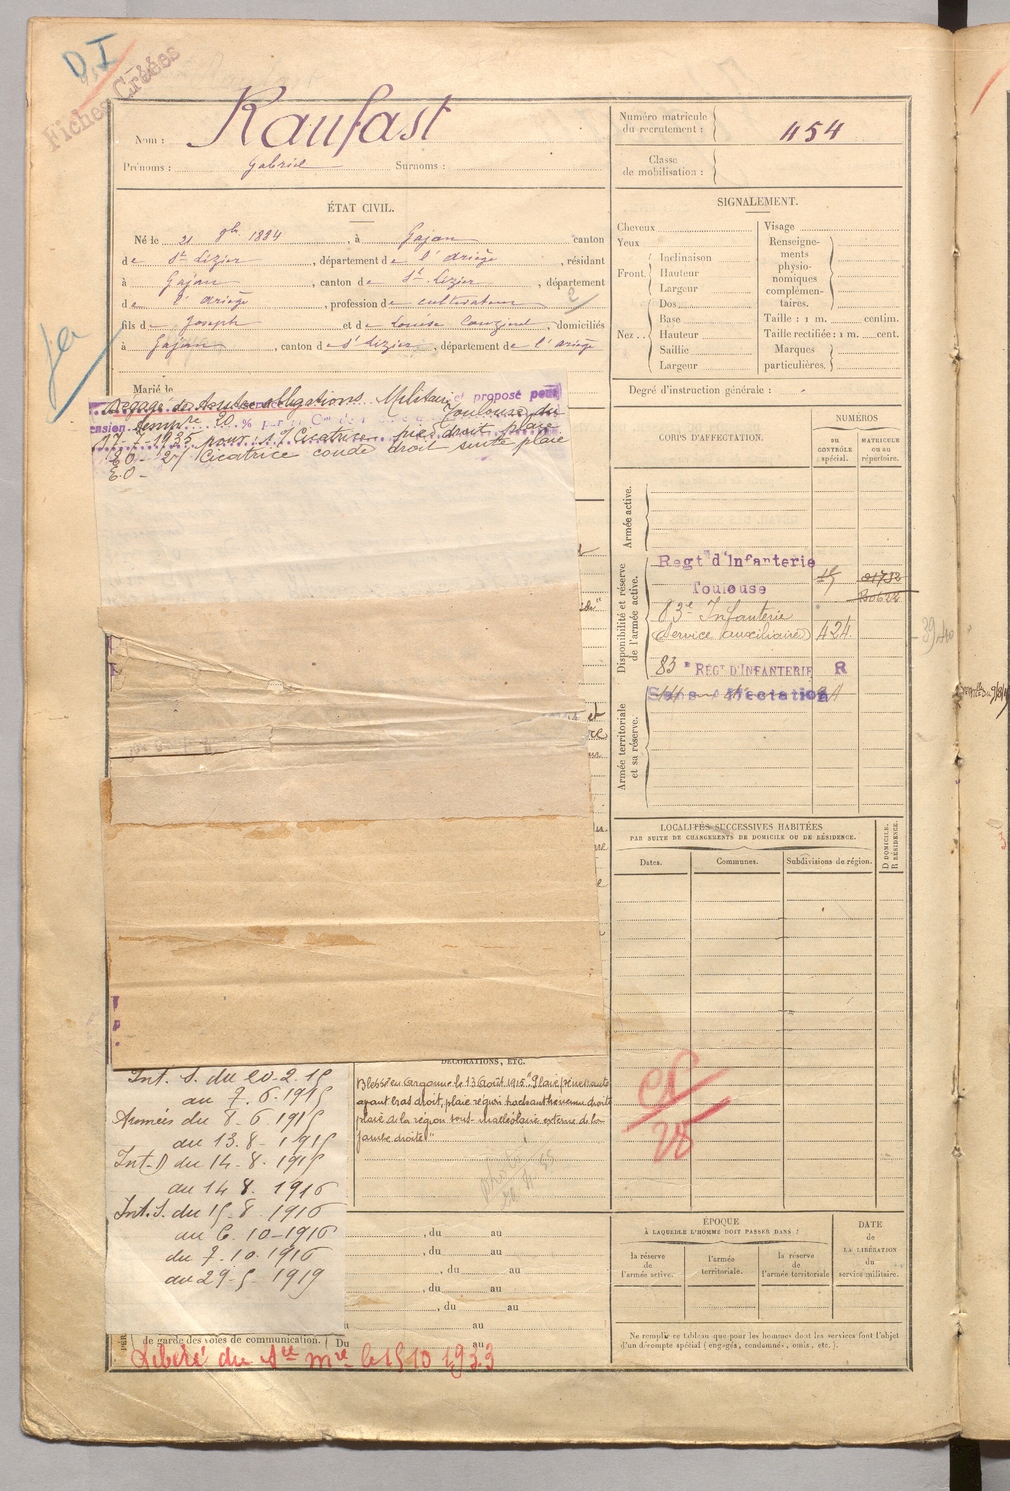 D.I
Fiches Créées
Nom : Raufast
Prénoms : Gabriel Surnoms :
Numéro matricule du recrutement : 454
Classe de mobilisation :
ÉTAT CIVIL.
Né le 21 8bre 1894, à Gajan canton
de St Lizier, département de l'ariège, résidant
à Gajan, canton de St Lizier, département
de l'ariège, profession de cultivateur
fils de Joseph et de Louise, domiciliés
à Gajan, canton de St Lizier, département de l'ariège
Marié le
SIGNALEMENT.
Cheveux
Yeux
Front
Inclinaison
Hauteur
Largeur
Nez
Dos
Base
Hauteur
Saillie
Largeur
Visage
Renseignements physionomiques complémentaires.
Taille : 1 m. centim.
Taille rectifiée : 1 m. cent.
Marques particulières.
Degré d'instruction générale :
Dégagé de toutes obligations Militaires
et proposé pour
pension temp 20 % Toulouse du
17-7-1935 pour : 1/ Cicatrices pied droit plaie
E.O - 2/ Cicatrice coude droit suite plaie
E.O -
CORPS D'AFFECTATION.
NUMÉROS
DU CONTRÔLE spécial.
MATRICULE ou au répertoire.
Armée active.
Disponibilité et réserve de l'armée active.
Regt d'Infanterie
Toulouse
83e Infanterie
Service auxiliaire 424
83e RÉGt D'INFANTERIE R
Sans affectation
Armée territoriale et sa réserve.
LOCALITÉS SUCCESSIVES HABITÉES
PAR SUITE DE CHANGEMENTS DE DOMICILE OU DE RÉSIDENCE.
Dates.
Communes.
Subdivisions de région.
D DOMICILE.
R RÉSIDENCE.
DÉCORATIONS, ETC.
Blessé en Argonne le 13 Août 1915 "Plaie pénétrante
avant bras droit, plaie région trochanthérienne droite
plaie de la région sous-malléolaire externe de la
jambe droite"
Int. S. du 20-2-15
au 7.6-1915
Armées du 8-6-1915
au 13-8-1915
Int-D du 14-8-1915
au 14 8. 1916
Int. S. du 15-8-1916
au 6.10-1916
du 7.10.1916
au 29-5-1919
, du au
, du au
, du au
, du au
, du au
au
de garde des voies de communication. Du au
Libéré du Sce mre le 15 10 1933
28
ÉPOQUE
À LAQUELLE L'HOMME DOIT PASSER DANS :
la réserve de l'armée active.
l'armée territoriale.
la réserve de l'armée territoriale
DATE de LA LIBÉRATION du service militaire.
Ne remplir ce tableau que pour les hommes dont les services font l'objet
d'un décompte spécial (engagés, condamnés, omis, etc.).